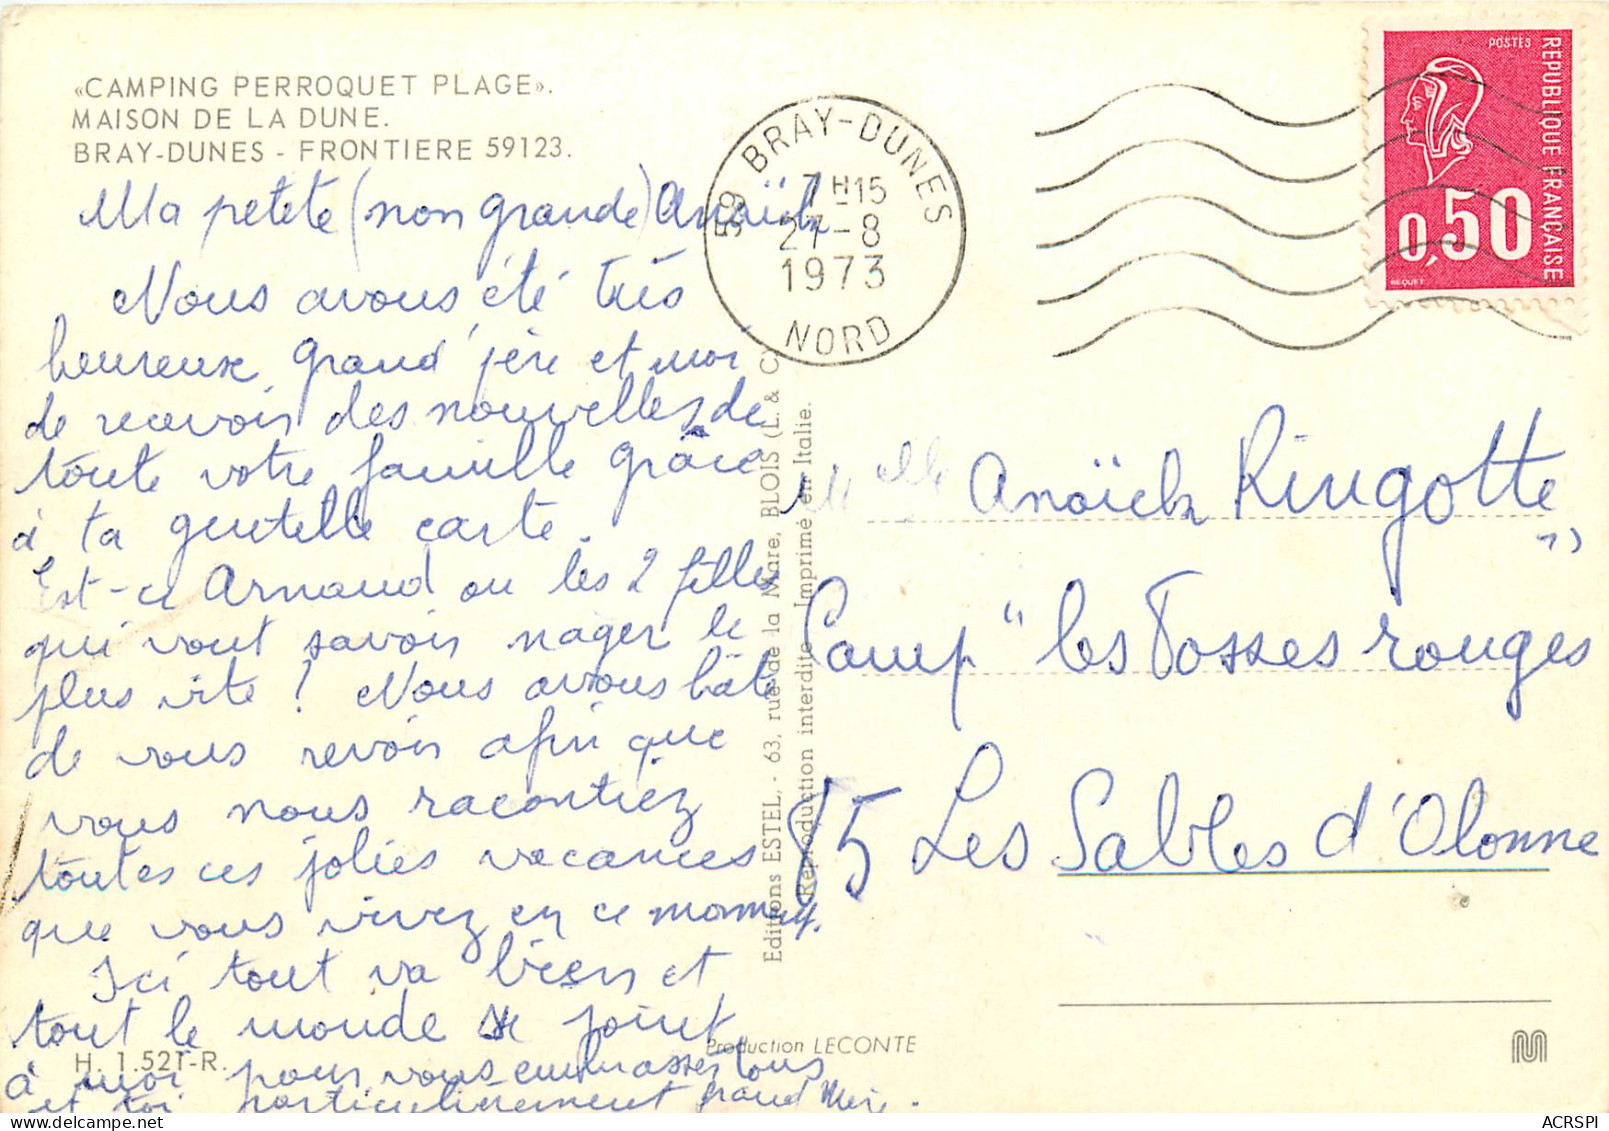 «CAMPING PERROQUET PLAGE».
MAISON DE LA DUNE.
BRAY-DUNES - FRONTIERE 59123.
Ma petite (non grande) Anaïck
Nous avons été très
heureux, Grand'père et moi,
de recevoir des nouvelles de
toute votre famille grâce
à ta gentille carte.
Est-ce Arnaud ou les 2 filles
qui vont savoir nager le
plus vite ? Nous avons hâte
de vous revoir afin que
vous nous racontiez
toutes ces jolies vacances
que vous vivez en ce moment.
Ici tout va bien et
tout le monde se joint
à moi pour vous embrasser tous
et toi particulièrement Grand'Mère.
H. 1.521-R.
Production LECONTE
Editions ESTEL, - 63, rue de la Mare, BLOIS (L. & C
Reproduction interdite Imprimé en Italie.
59 BRAY-DUNES
7H15
27-8
1973
NORD
POSTES
REPUBLIQUE FRANÇAISE
0,50
BEQUET
Melle Anaïck Ringotte
Camp "les Fosses rouges"
85 Les Sables d'Olonne
M
ACRSPI